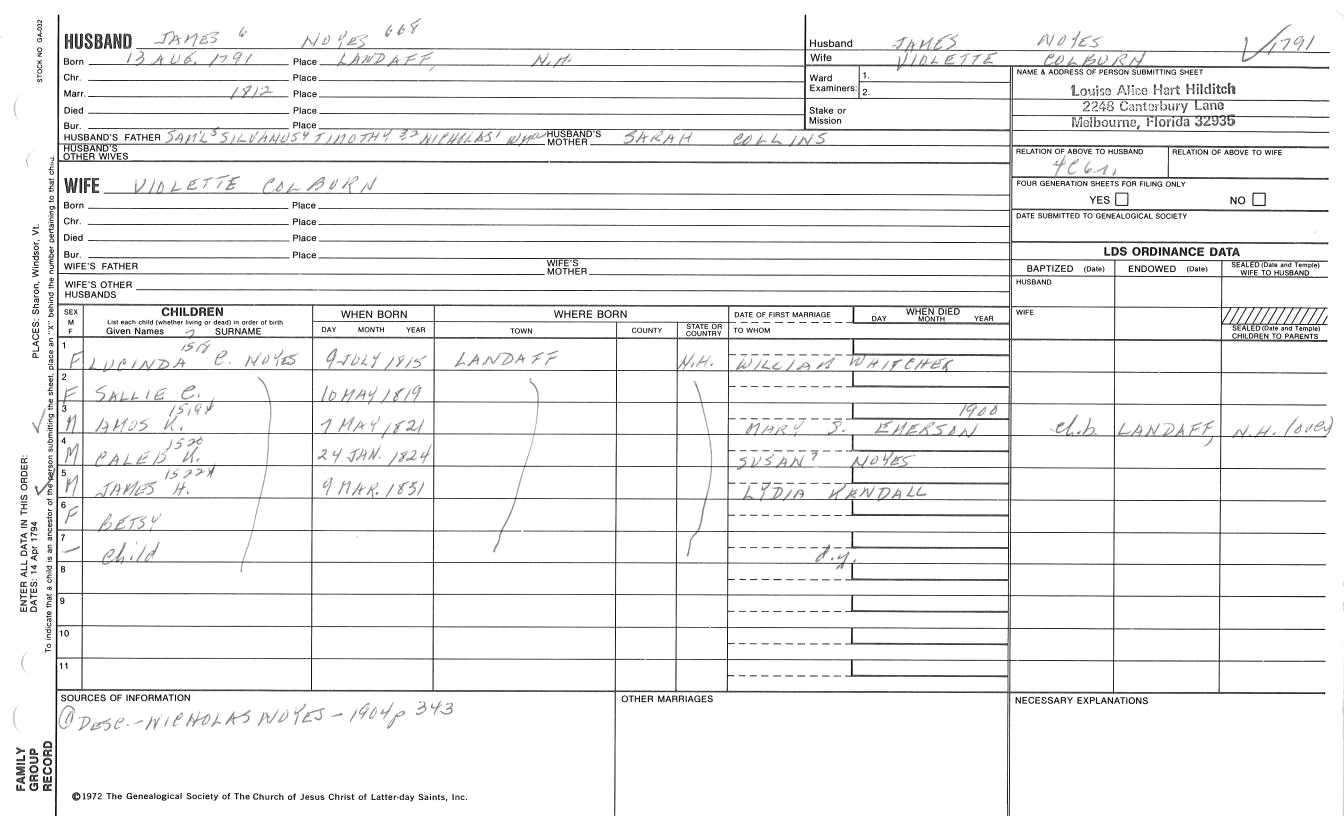 STOCK NO. GA-032
HUSBAND JAMES 6 NOYES 668
Born 13 AUG. 1791 Place LANDAFF, N.H.
Chr. Place
Marr. 1812 Place
Died Place
Bur. Place
HUSBAND'S FATHER SAM'L 5 SILVANUS 4 TIMOTHY 3 2 NICHOLAS 1 HUSBAND'S MOTHER SARAH COLLINS
HUSBAND'S OTHER WIVES
WIFE VIOLETTE COLBURN
Born Place
Chr. Place
Died Place
Bur. Place
WIFE'S FATHER WIFE'S MOTHER
WIFE'S OTHER HUSBANDS
Husband JAMES NOYES √1791
Wife VIOLETTE COLBURN
Ward Examiners: 1.
2.
Stake or Mission
NAME & ADDRESS OF PERSON SUBMITTING SHEET
Louise Alice Hart Hilditch
2248 Canterbury Lane
Melbourne, Florida 32935
RELATION OF ABOVE TO HUSBAND RELATION OF ABOVE TO WIFE
4C6r.
FOUR GENERATION SHEETS FOR FILING ONLY
YES NO
DATE SUBMITTED TO GENEALOGICAL SOCIETY
LDS ORDINANCE DATA
BAPTIZED (Date) ENDOWED (Date) SEALED (Date and Temple) WIFE TO HUSBAND
HUSBAND
WIFE
SEALED (Date and Temple) CHILDREN TO PARENTS
SEX M F CHILDREN WHEN BORN WHERE BORN DATE OF FIRST MARRIAGE WHEN DIED
List each child (whether living or dead) in order of birth
Given Names 7 SURNAME DAY MONTH YEAR TOWN COUNTY STATE OR COUNTRY TO WHOM DAY MONTH YEAR
1 1518
F LUCINDA C. NOYES 9 JULY 1815 LANDAFF N.H. WILLIAM WHITCHER
2
F SALLIE C. 10 MAY 1819
3 1519x 1900
M AMOS K. 7 MAY 1821 MARY S. EMERSON ch.b. LANDAFF, N.H. (over)
4 1520
M CALEB K. 24 JAN. 1824 SUSAN 7 NOYES
5 1522x
M JAMES H. 9 MAR. 1831 LYDIA KENDALL
6
F BETSY
7
— child d.y.
8
9
10
11
SOURCES OF INFORMATION OTHER MARRIAGES NECESSARY EXPLANATIONS
① DESC.-NICHOLAS NOYES-1904 p 343
©1972 The Genealogical Society of The Church of Jesus Christ of Latter-day Saints, Inc.
PLACES: Sharon, Windsor, Vt.
ENTER ALL DATA IN THIS ORDER:
DATES: 14 Apr 1794
To indicate that a child is an ancestor of the person submitting the sheet, place an "X" behind the number pertaining to that child.
FAMILY GROUP RECORD